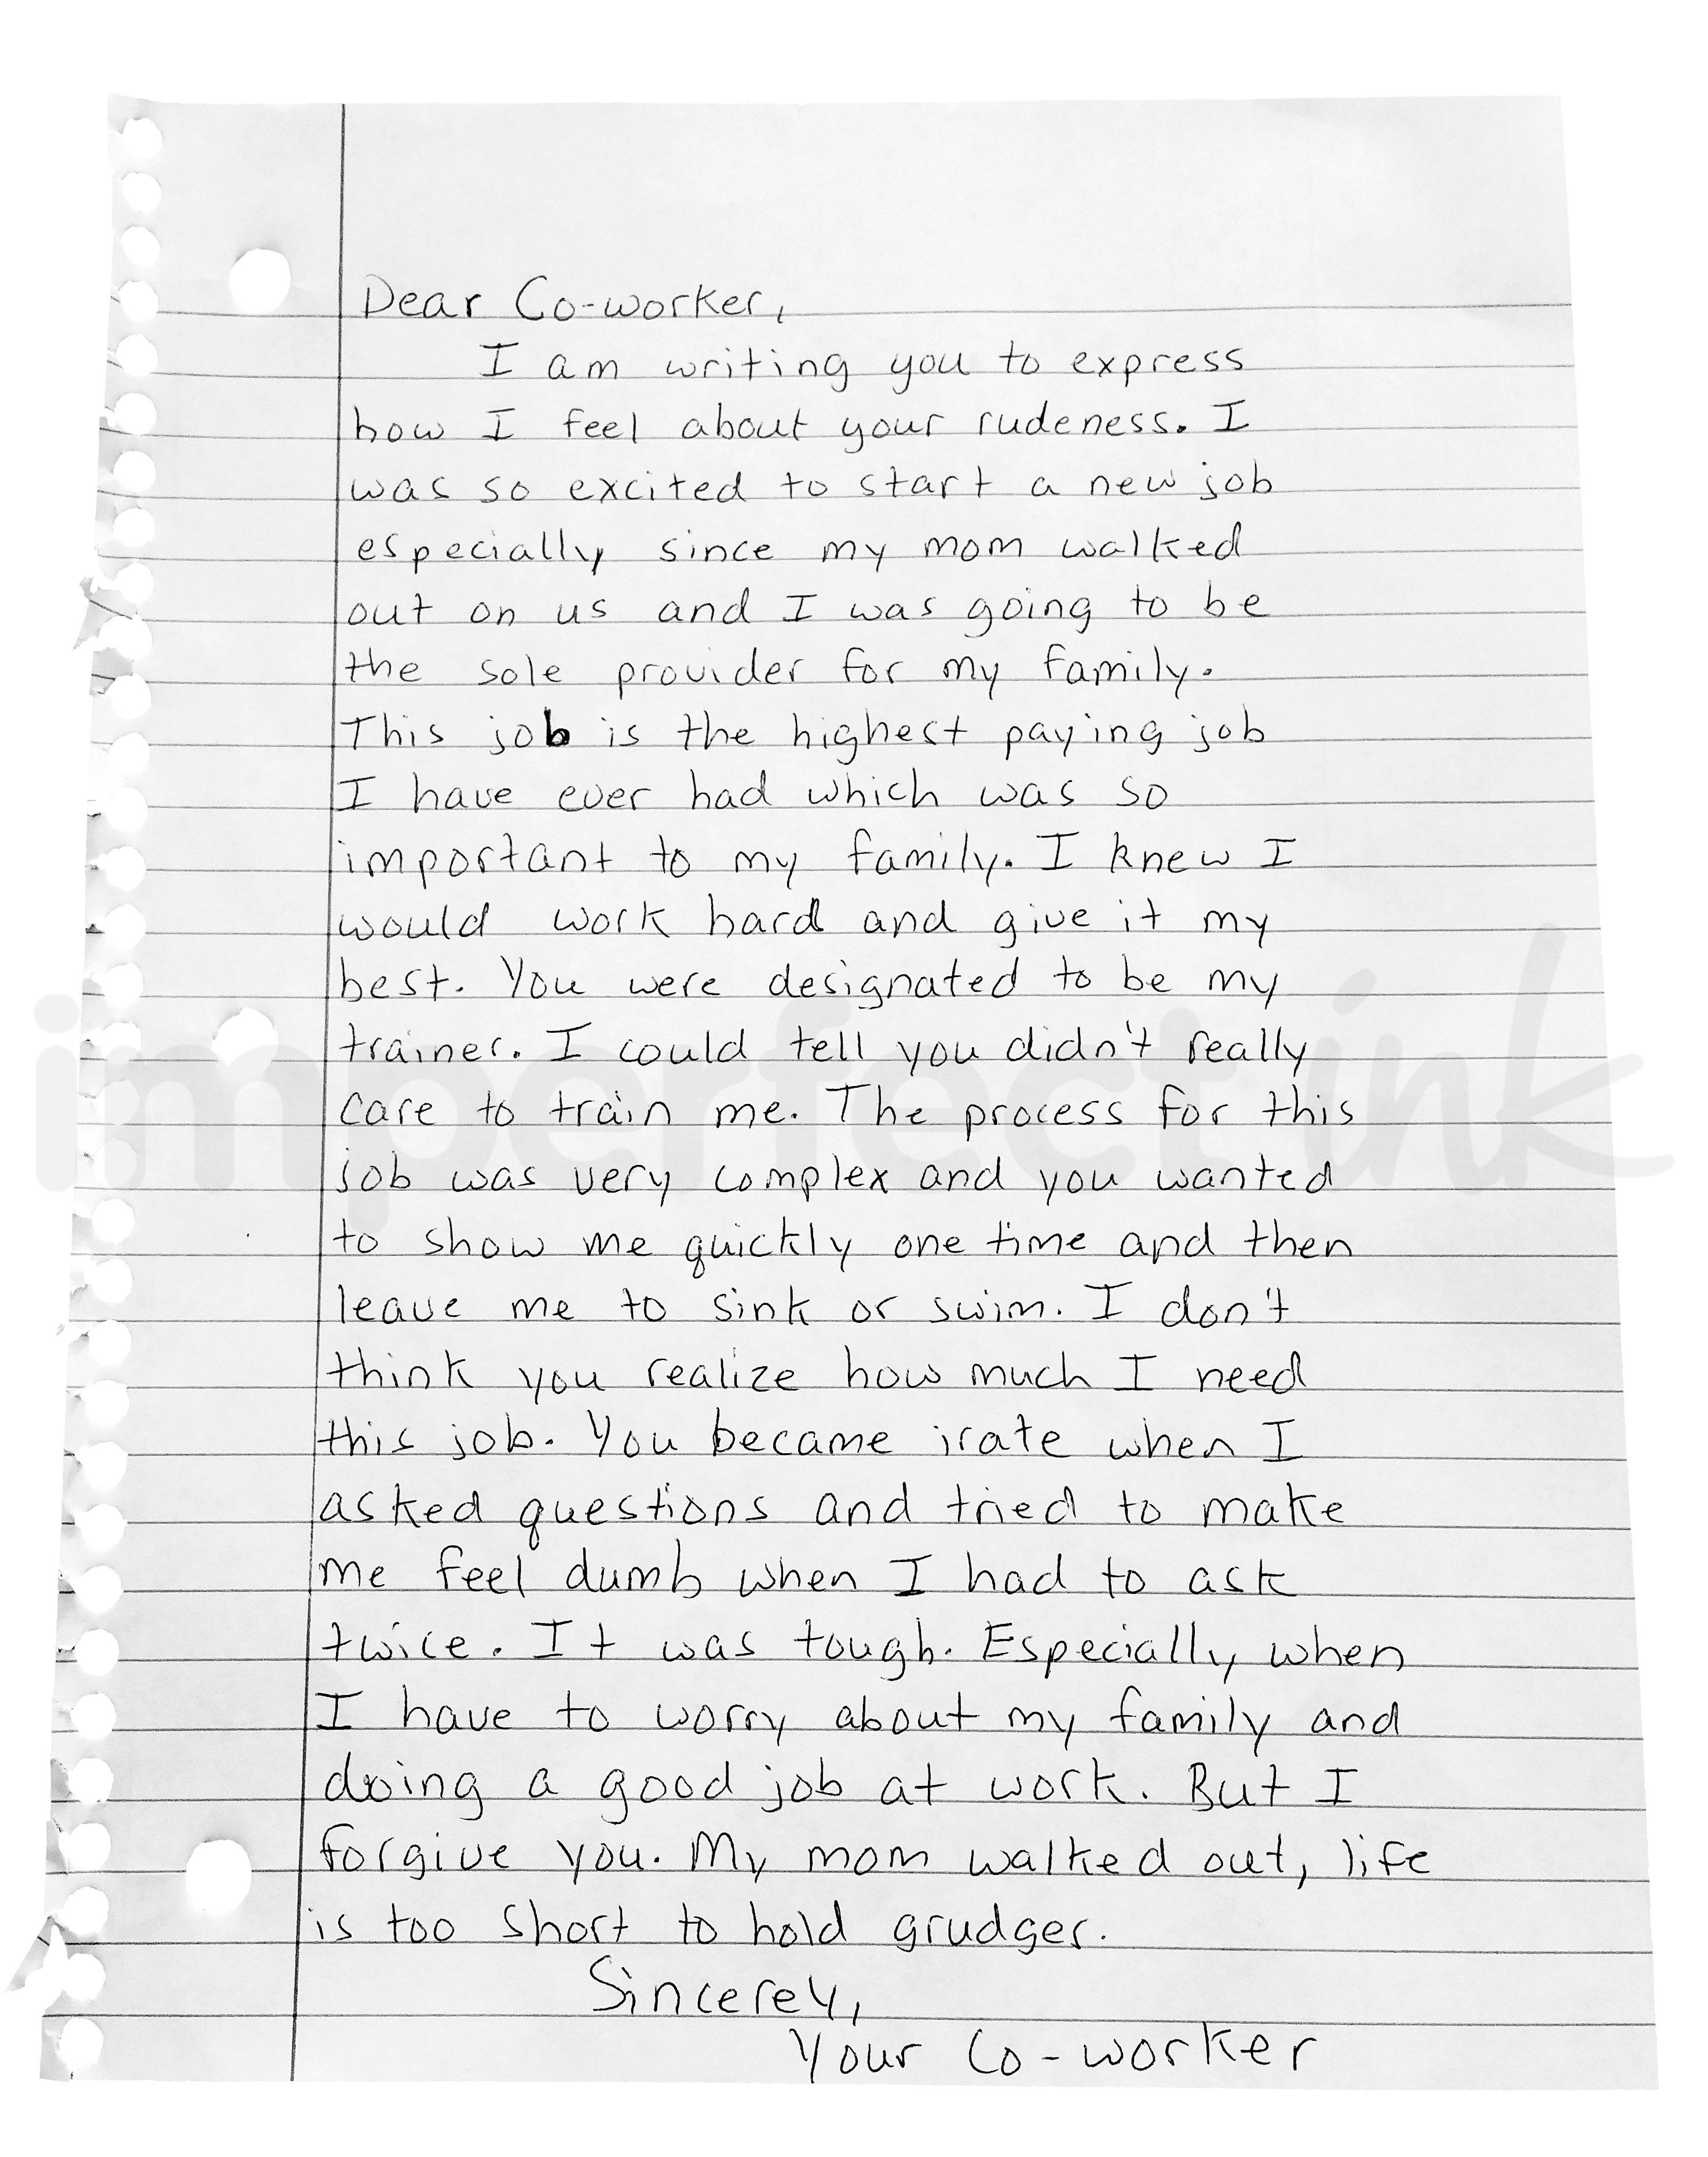 Dear Co-worker,
I am writing you to express
how I feel about your rudeness. I
was so excited to start a new job
especially since my mom walked
out on us and I was going to be
the sole provider for my family.
This job is the highest paying job
I have ever had which was so
important to my family. I knew I
would work hard and give it my
best. You were designated to be my
trainer. I could tell you didn't really
care to train me. The process for this
job was very complex and you wanted
to show me quickly one time and then
leave me to sink or swim. I don't
think you realize how much I need
this job. You became irate when I
asked questions and tried to make
me feel dumb when I had to ask
twice. It was tough. Especially when
I have to worry about my family and
doing a good job at work. But I
forgive you. My mom walked out, life
is too short to hold grudges.
Sincerey,
Your Co-worker
imperfect ink